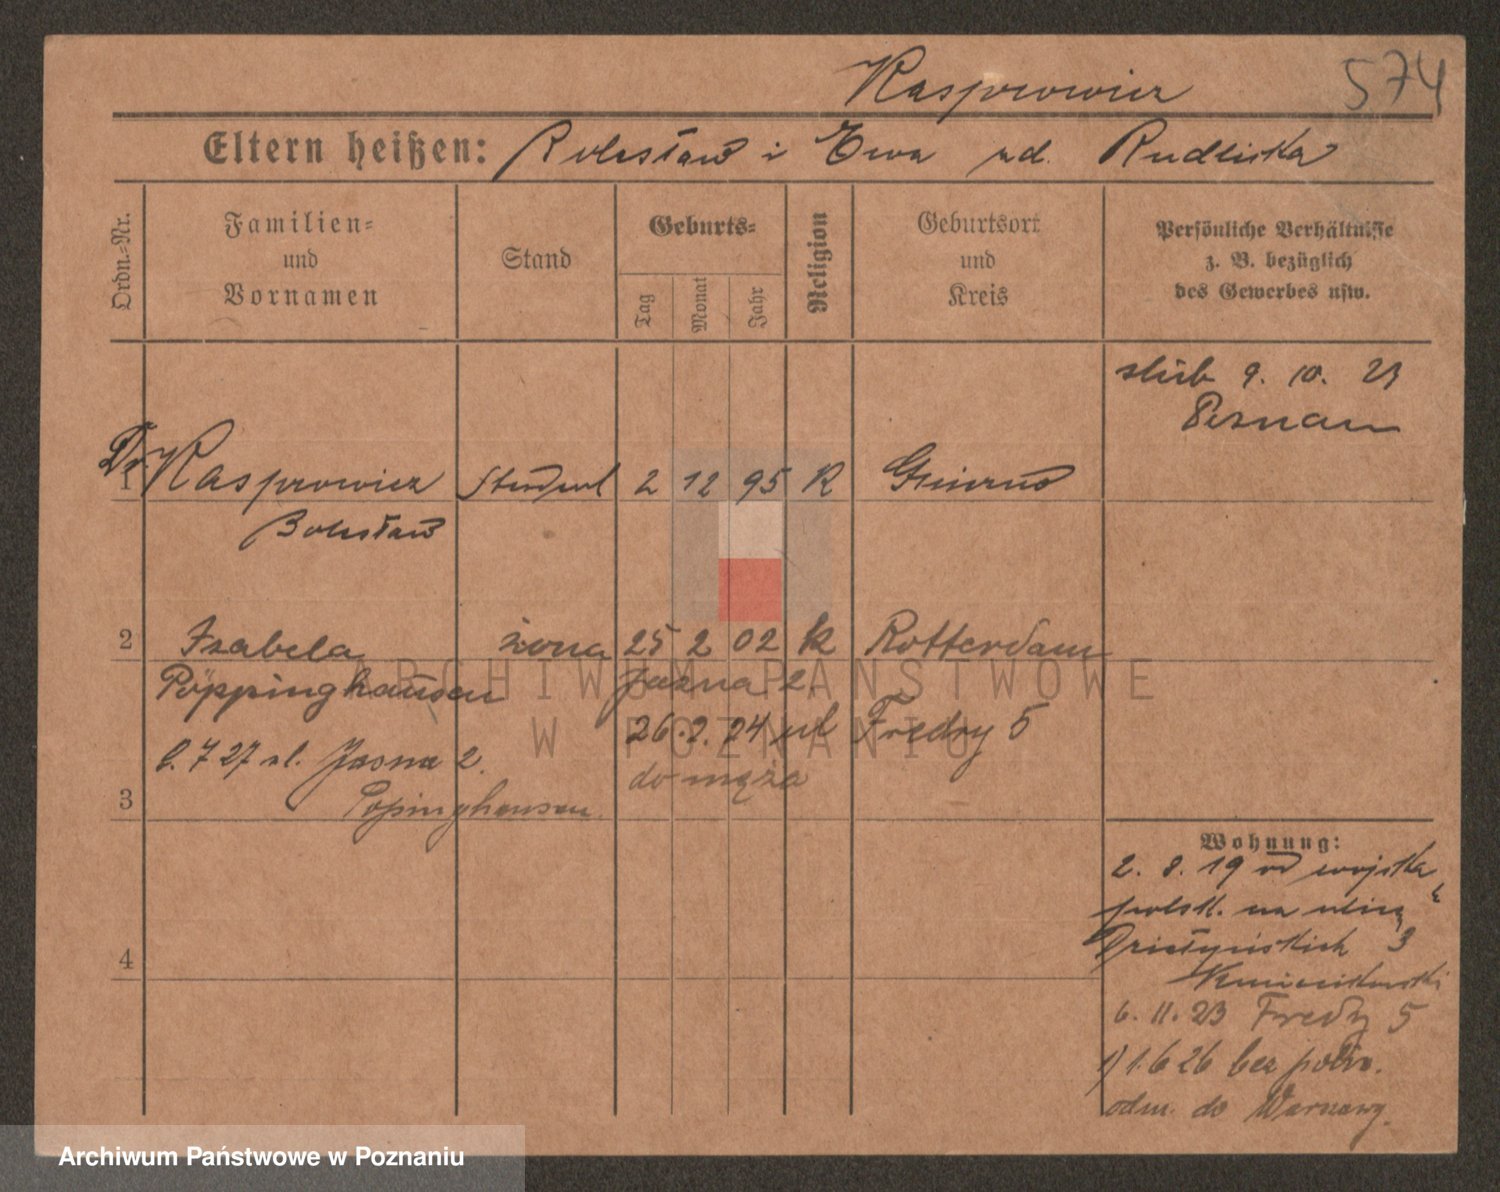 Kasprowicz 574
Eltern heißen: Bolesław i Ewa ud. Rudlicka
Ordn.-Nr.
Familien- und Vornamen
Stand
Geburts-
Tag Monat Jahr
Religion
Geburtsort und Kreis
Persönliche Verhältnisse z. B. bezüglich des Gewerbes usw.
ślub 9. 10. 23
Poznań
Dr
1 Kasprowicz Student 2 12 95 K
Bolesław
2 Izabela żona 25 2 02 k Rotterdam
Pöppinghausen Jasna 2.
26. 2. 24 ul Fredry 5
7 27 ul. Jasna 2.
do męża
3 Popinghausen
4
Wohnung:
2. 8. 19 od wojska
polsk. na ulicę
Działyńskich 3
6. 11. 23 Fredry 5
1) 1.6 26 bez potw.
odm. do Warszawy.
ARCHIWUM PAŃSTWOWE
W POZNANIU
Archiwum Państwowe w Poznaniu